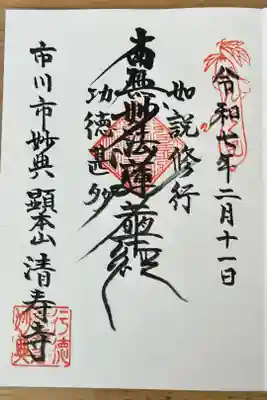 令和七年二月十一日
如説修行
南無妙法蓮華経
功徳甚多
市川市妙典 顕本山 清寿寺
行徳
妙典